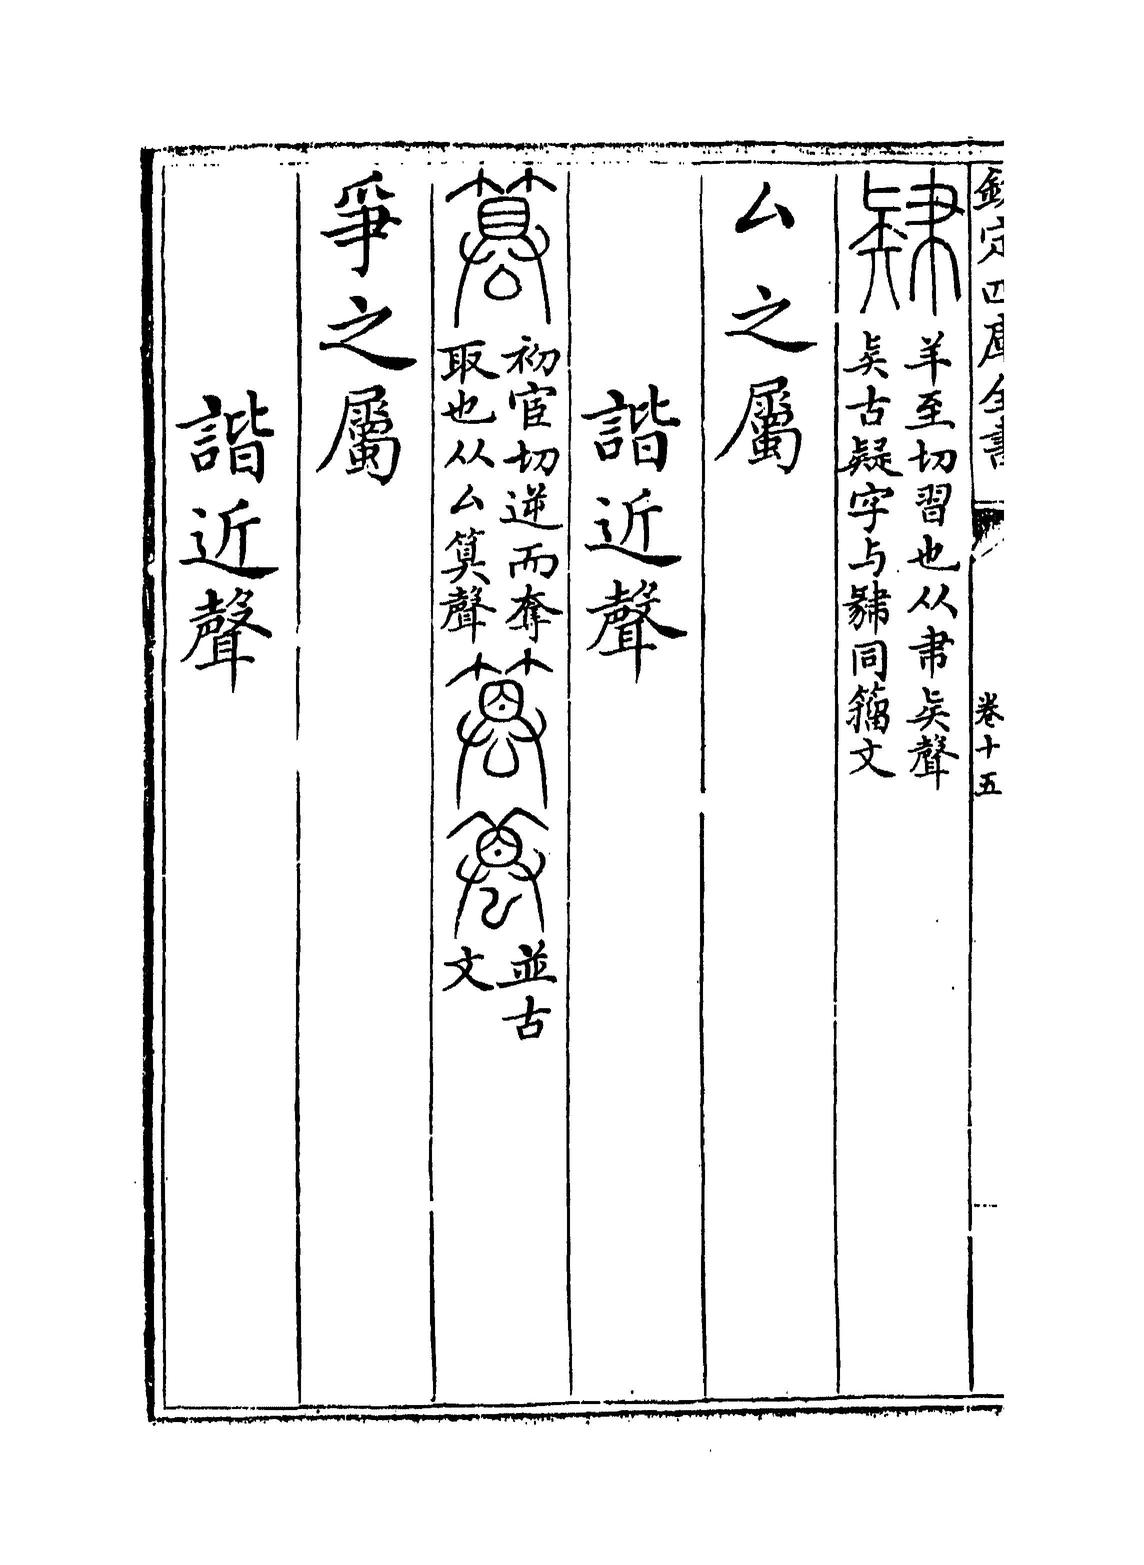 欽定四庫全書
卷十五
羊至切習也从𦘒𠤕聲
𠤕古疑字与𨽿同籀文
厶之屬
諧近聲
初宦切逆而奪
取也从厶算聲
並古
文
爭之屬
諧近聲